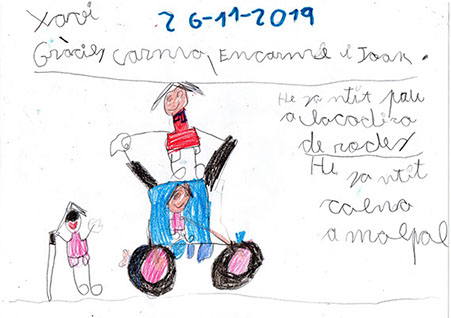 Xavi
26-11-2019
Gràcies carma, Encarnné i Joan.
He santit pau
a lacadira
de rodes
He santit
calma
a molpal